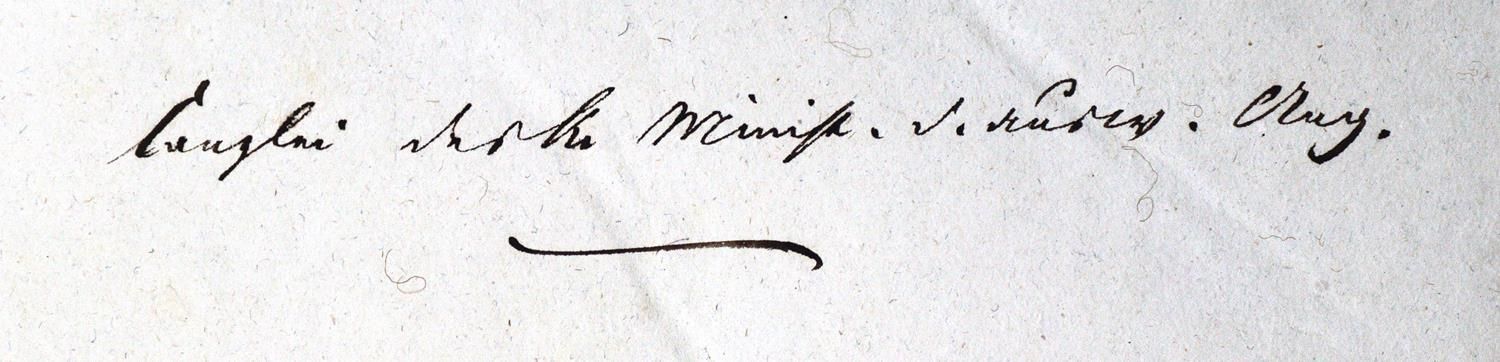 Canzlei des k. Minist. d. ausw. Ang.